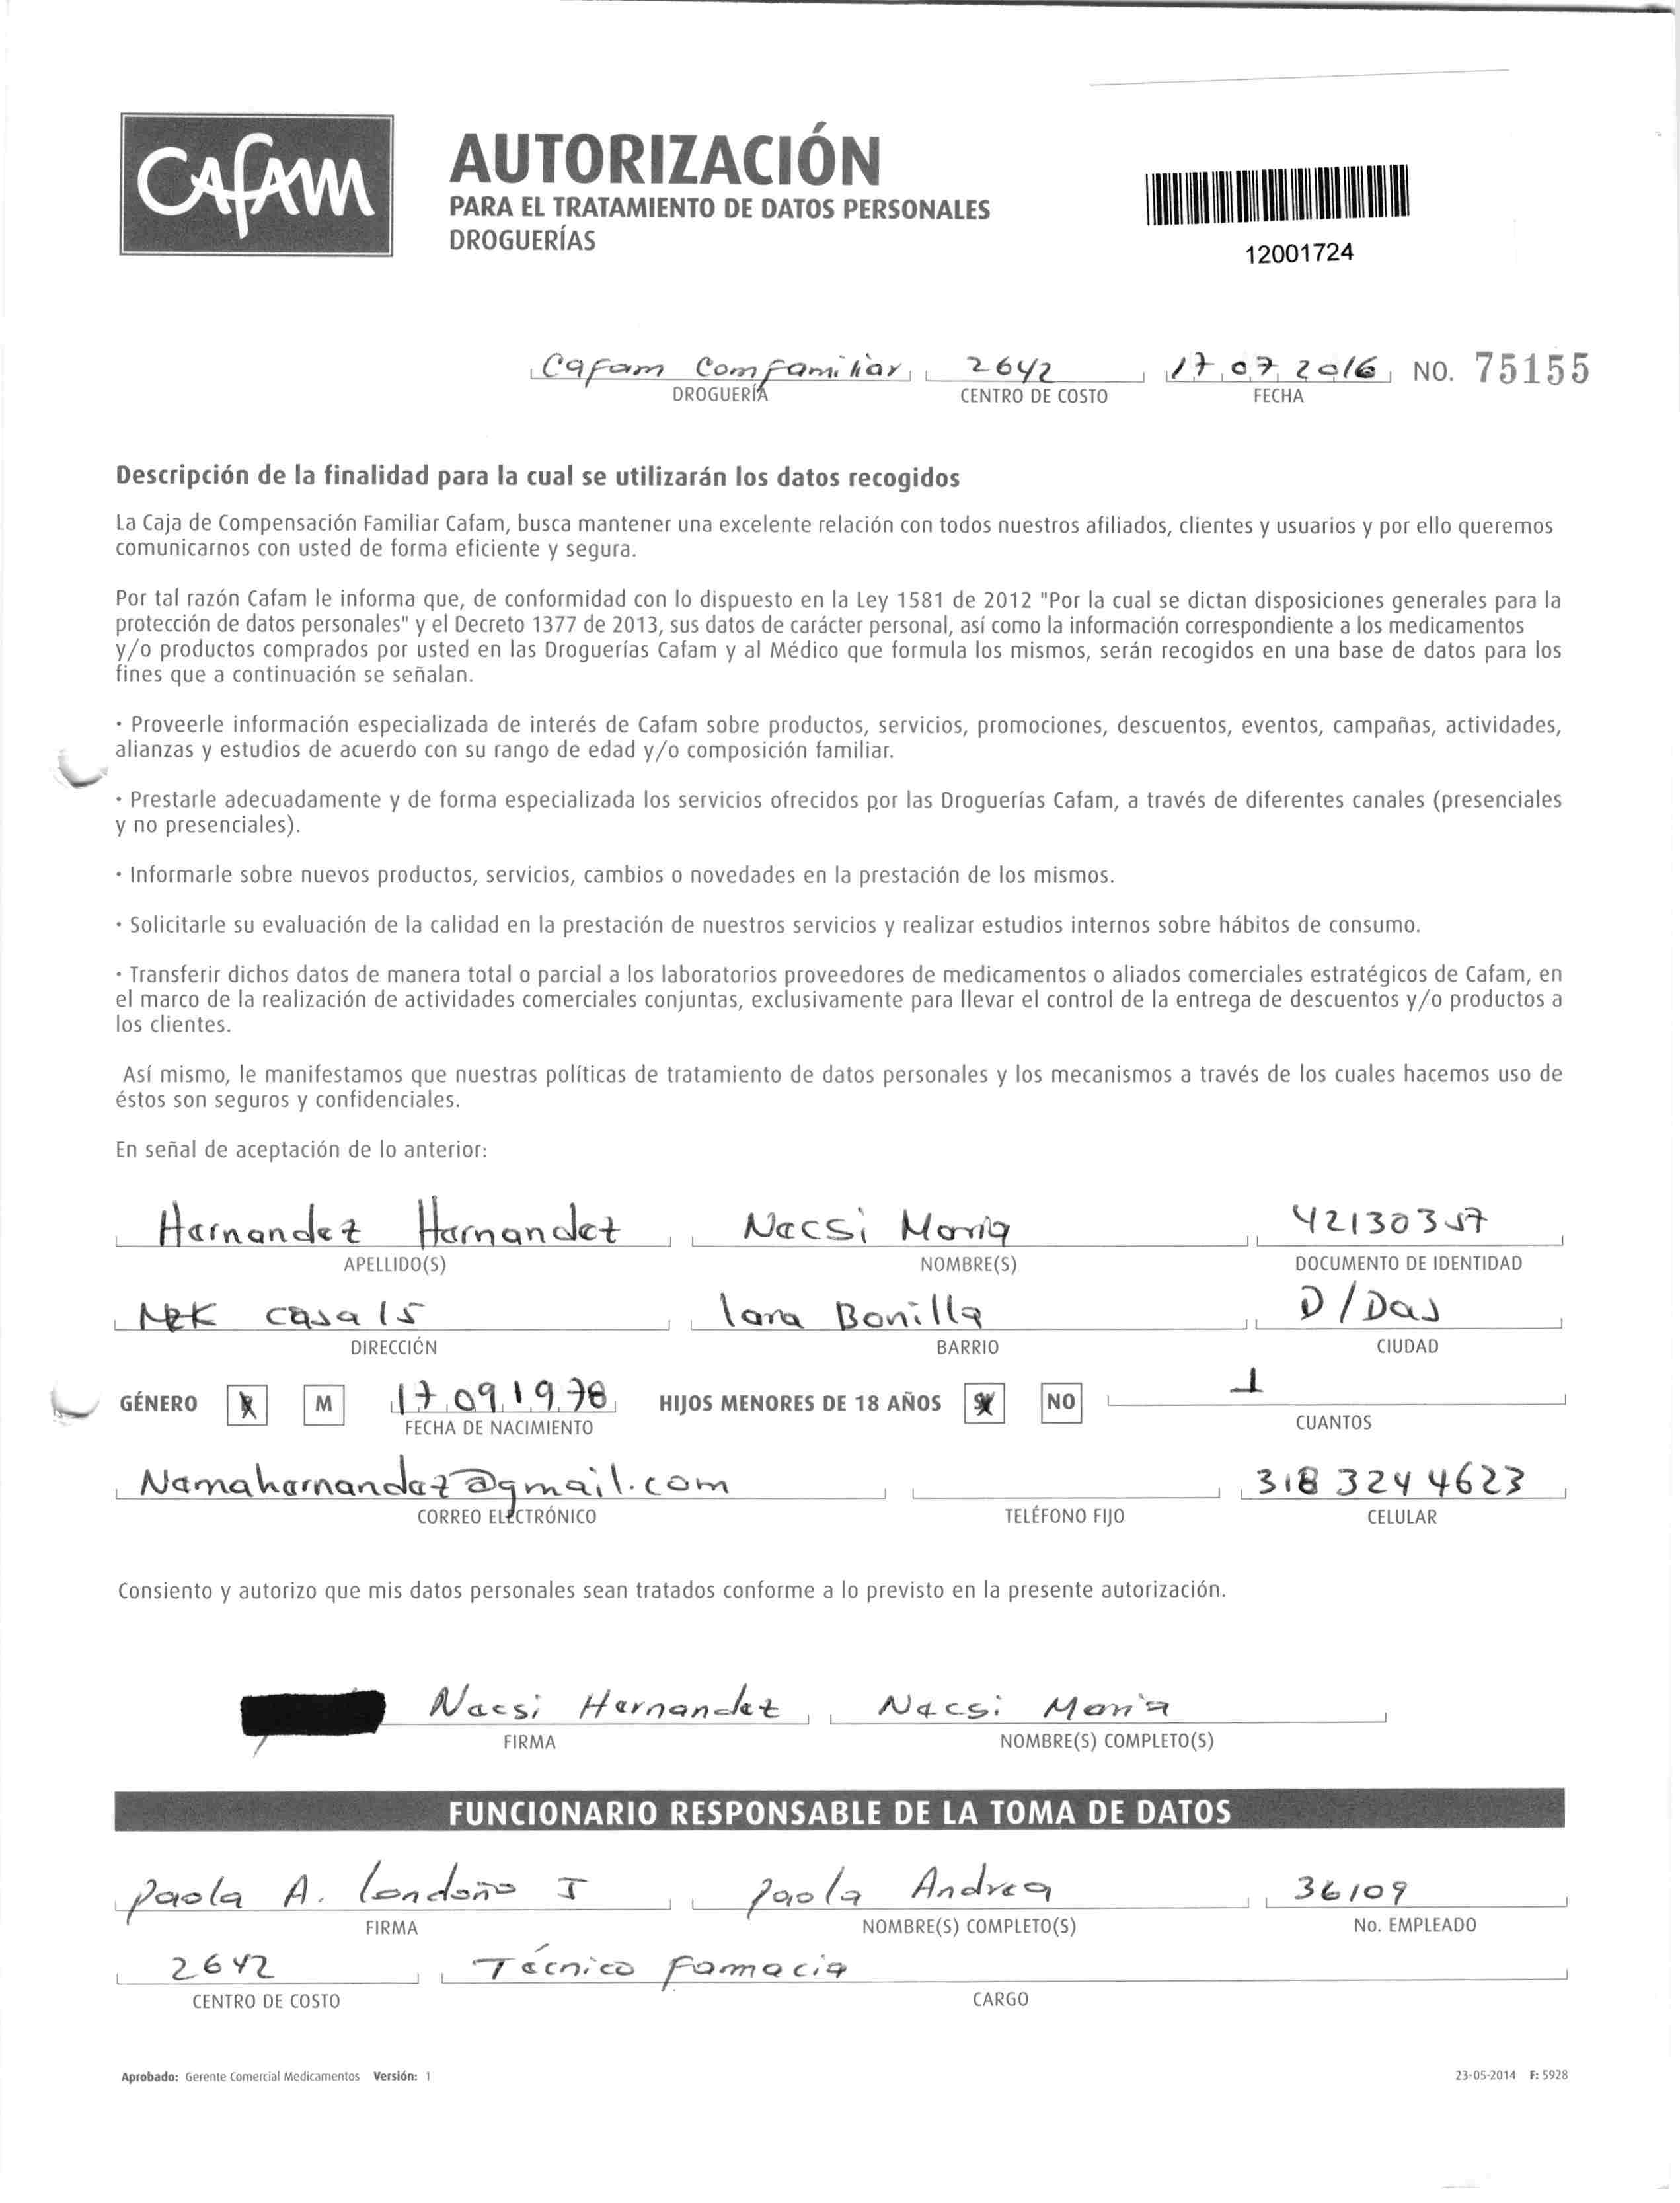 Cafam
AUTORIZACIÓN
PARA EL TRATAMIENTO DE DATOS PERSONALES
DROGUERÍAS
12001724
Cafam Comfamiliar 2642 17 07 2016 NO. 75155
DROGUERÍA CENTRO DE COSTO FECHA
Descripción de la finalidad para la cual se utilizarán los datos recogidos
La Caja de Compensación Familiar Cafam, busca mantener una excelente relación con todos nuestros afiliados, clientes y usuarios y por ello queremos
comunicarnos con usted de forma eficiente y segura.
Por tal razón Cafam le informa que, de conformidad con lo dispuesto en la Ley 1581 de 2012 "Por la cual se dictan disposiciones generales para la
protección de datos personales" y el Decreto 1377 de 2013, sus datos de carácter personal, así como la información correspondiente a los medicamentos
y/o productos comprados por usted en las Droguerías Cafam y al Médico que formula los mismos, serán recogidos en una base de datos para los
fines que a continuación se señalan.
· Proveerle información especializada de interés de Cafam sobre productos, servicios, promociones, descuentos, eventos, campañas, actividades,
alianzas y estudios de acuerdo con su rango de edad y/o composición familiar.
· Prestarle adecuadamente y de forma especializada los servicios ofrecidos por las Droguerías Cafam, a través de diferentes canales (presenciales
y no presenciales).
· Informarle sobre nuevos productos, servicios, cambios o novedades en la prestación de los mismos.
· Solicitarle su evaluación de la calidad en la prestación de nuestros servicios y realizar estudios internos sobre hábitos de consumo.
· Transferir dichos datos de manera total o parcial a los laboratorios proveedores de medicamentos o aliados comerciales estratégicos de Cafam, en
el marco de la realización de actividades comerciales conjuntas, exclusivamente para llevar el control de la entrega de descuentos y/o productos a
los clientes.
Así mismo, le manifestamos que nuestras políticas de tratamiento de datos personales y los mecanismos a través de los cuales hacemos uso de
éstos son seguros y confidenciales.
En señal de aceptación de lo anterior:
Hernandez Hernandez Necsi Maria 42130357
APELLIDO(S) NOMBRE(S) DOCUMENTO DE IDENTIDAD
casa 15 lara Bonilla D/Das
DIRECCIÓN BARRIO CIUDAD
GÉNERO M 17 09 1978 HIJOS MENORES DE 18 AÑOS SI NO 1
FECHA DE NACIMIENTO CUANTOS
Namahernandez@gmail.com 318 324 4623
CORREO ELECTRÓNICO TELÉFONO FIJO CELULAR
Consiento y autorizo que mis datos personales sean tratados conforme a lo previsto en la presente autorización.
Nacsi Hernandez Nacsi Maria
FIRMA NOMBRE(S) COMPLETO(S)
FUNCIONARIO RESPONSABLE DE LA TOMA DE DATOS
Paola A. Londoño J Paola Andrea 36109
FIRMA NOMBRE(S) COMPLETO(S) No. EMPLEADO
2642 Técnico farmacia
CENTRO DE COSTO CARGO
Aprobado: Gerente Comercial Medicamentos Versión: 1 23-05-2014 F: 5928